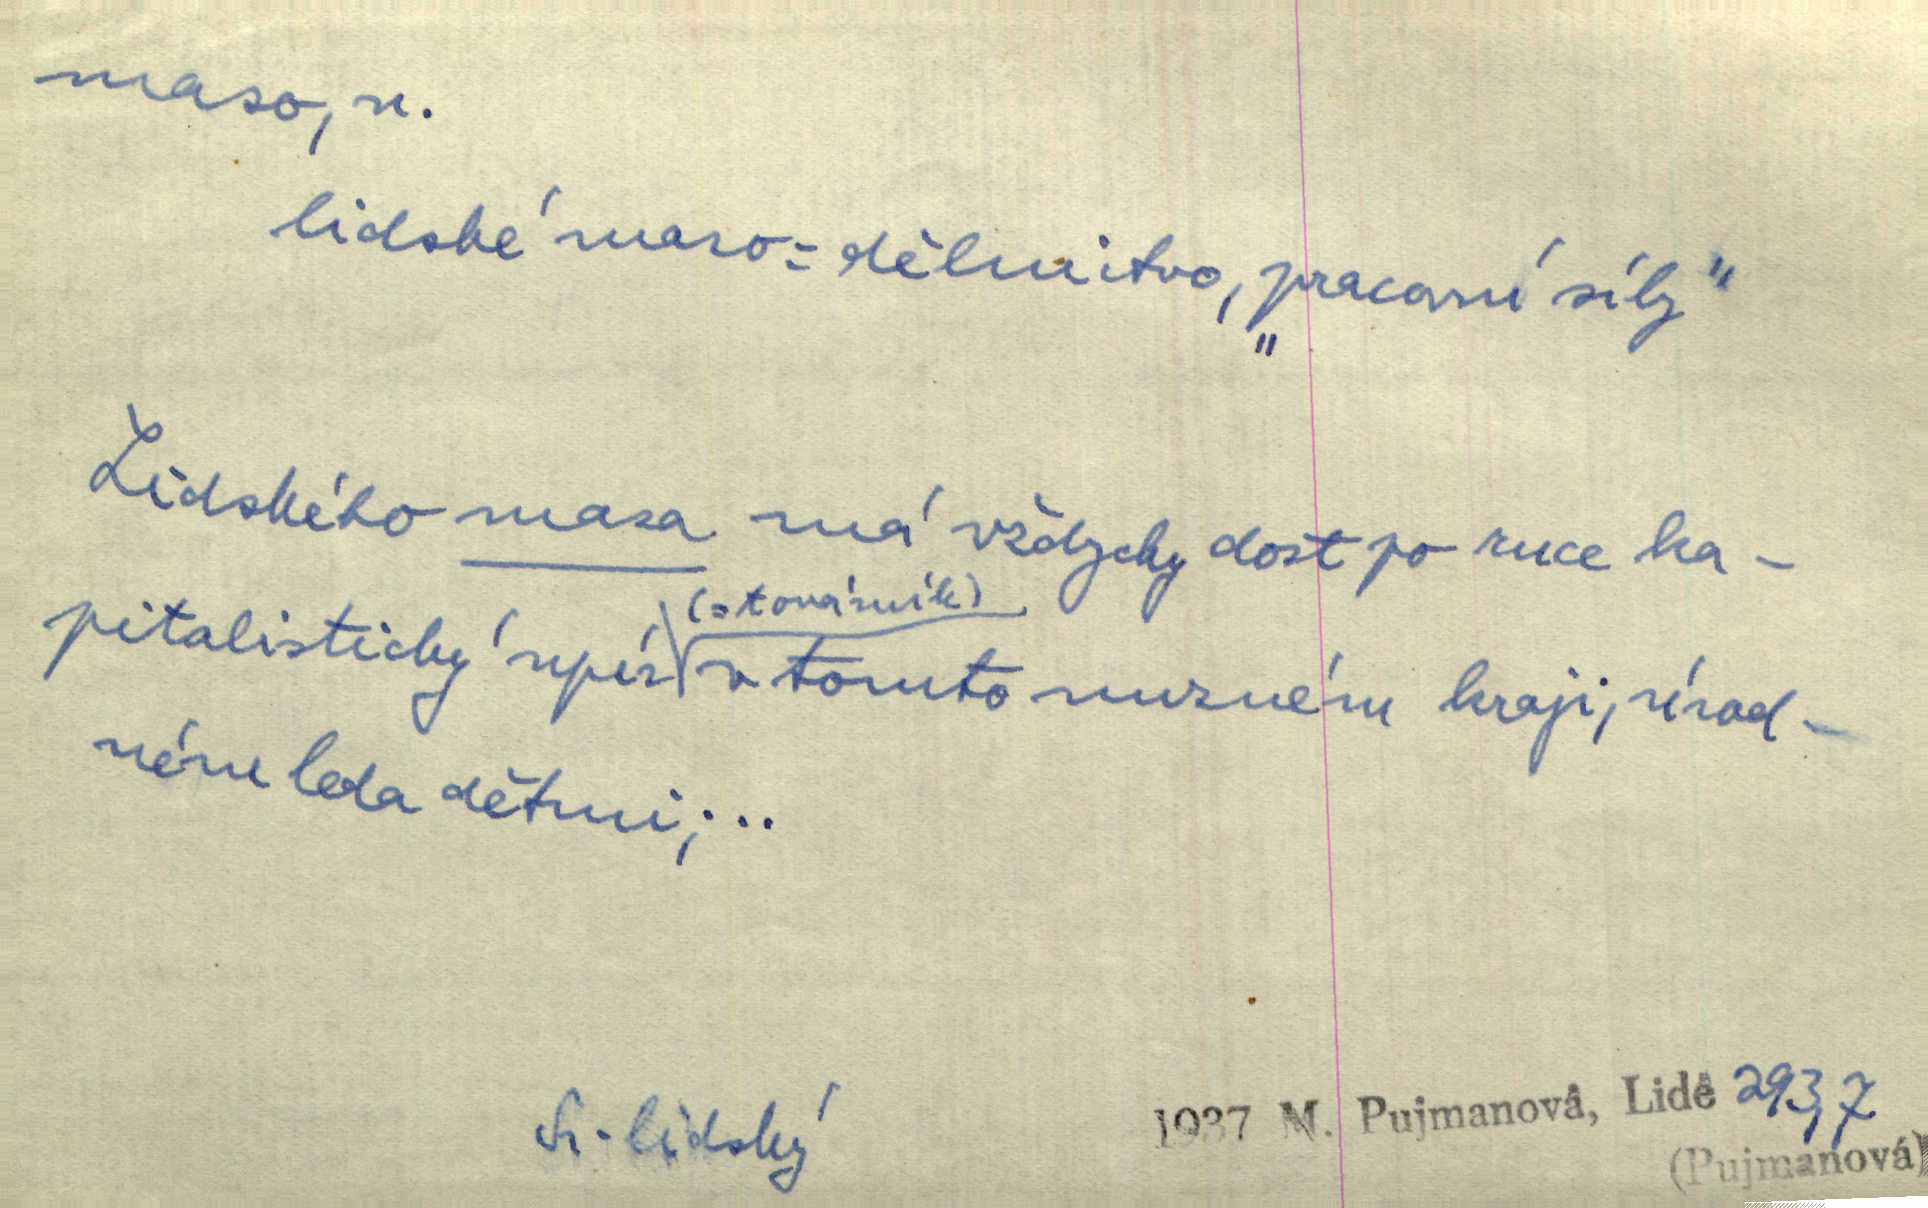 maso, n.
lidské maso = dělnictvo, „pracovní síly"
Lidského masa má vždycky dost po ruce ka-
pitalistický upír (= továrník) v tomto nuzném kraji, úrod-
ném leda dětmi; ...
Sr. lidský
1937 M. Pujmanová, Lidé 293,7
(Pujmanová)